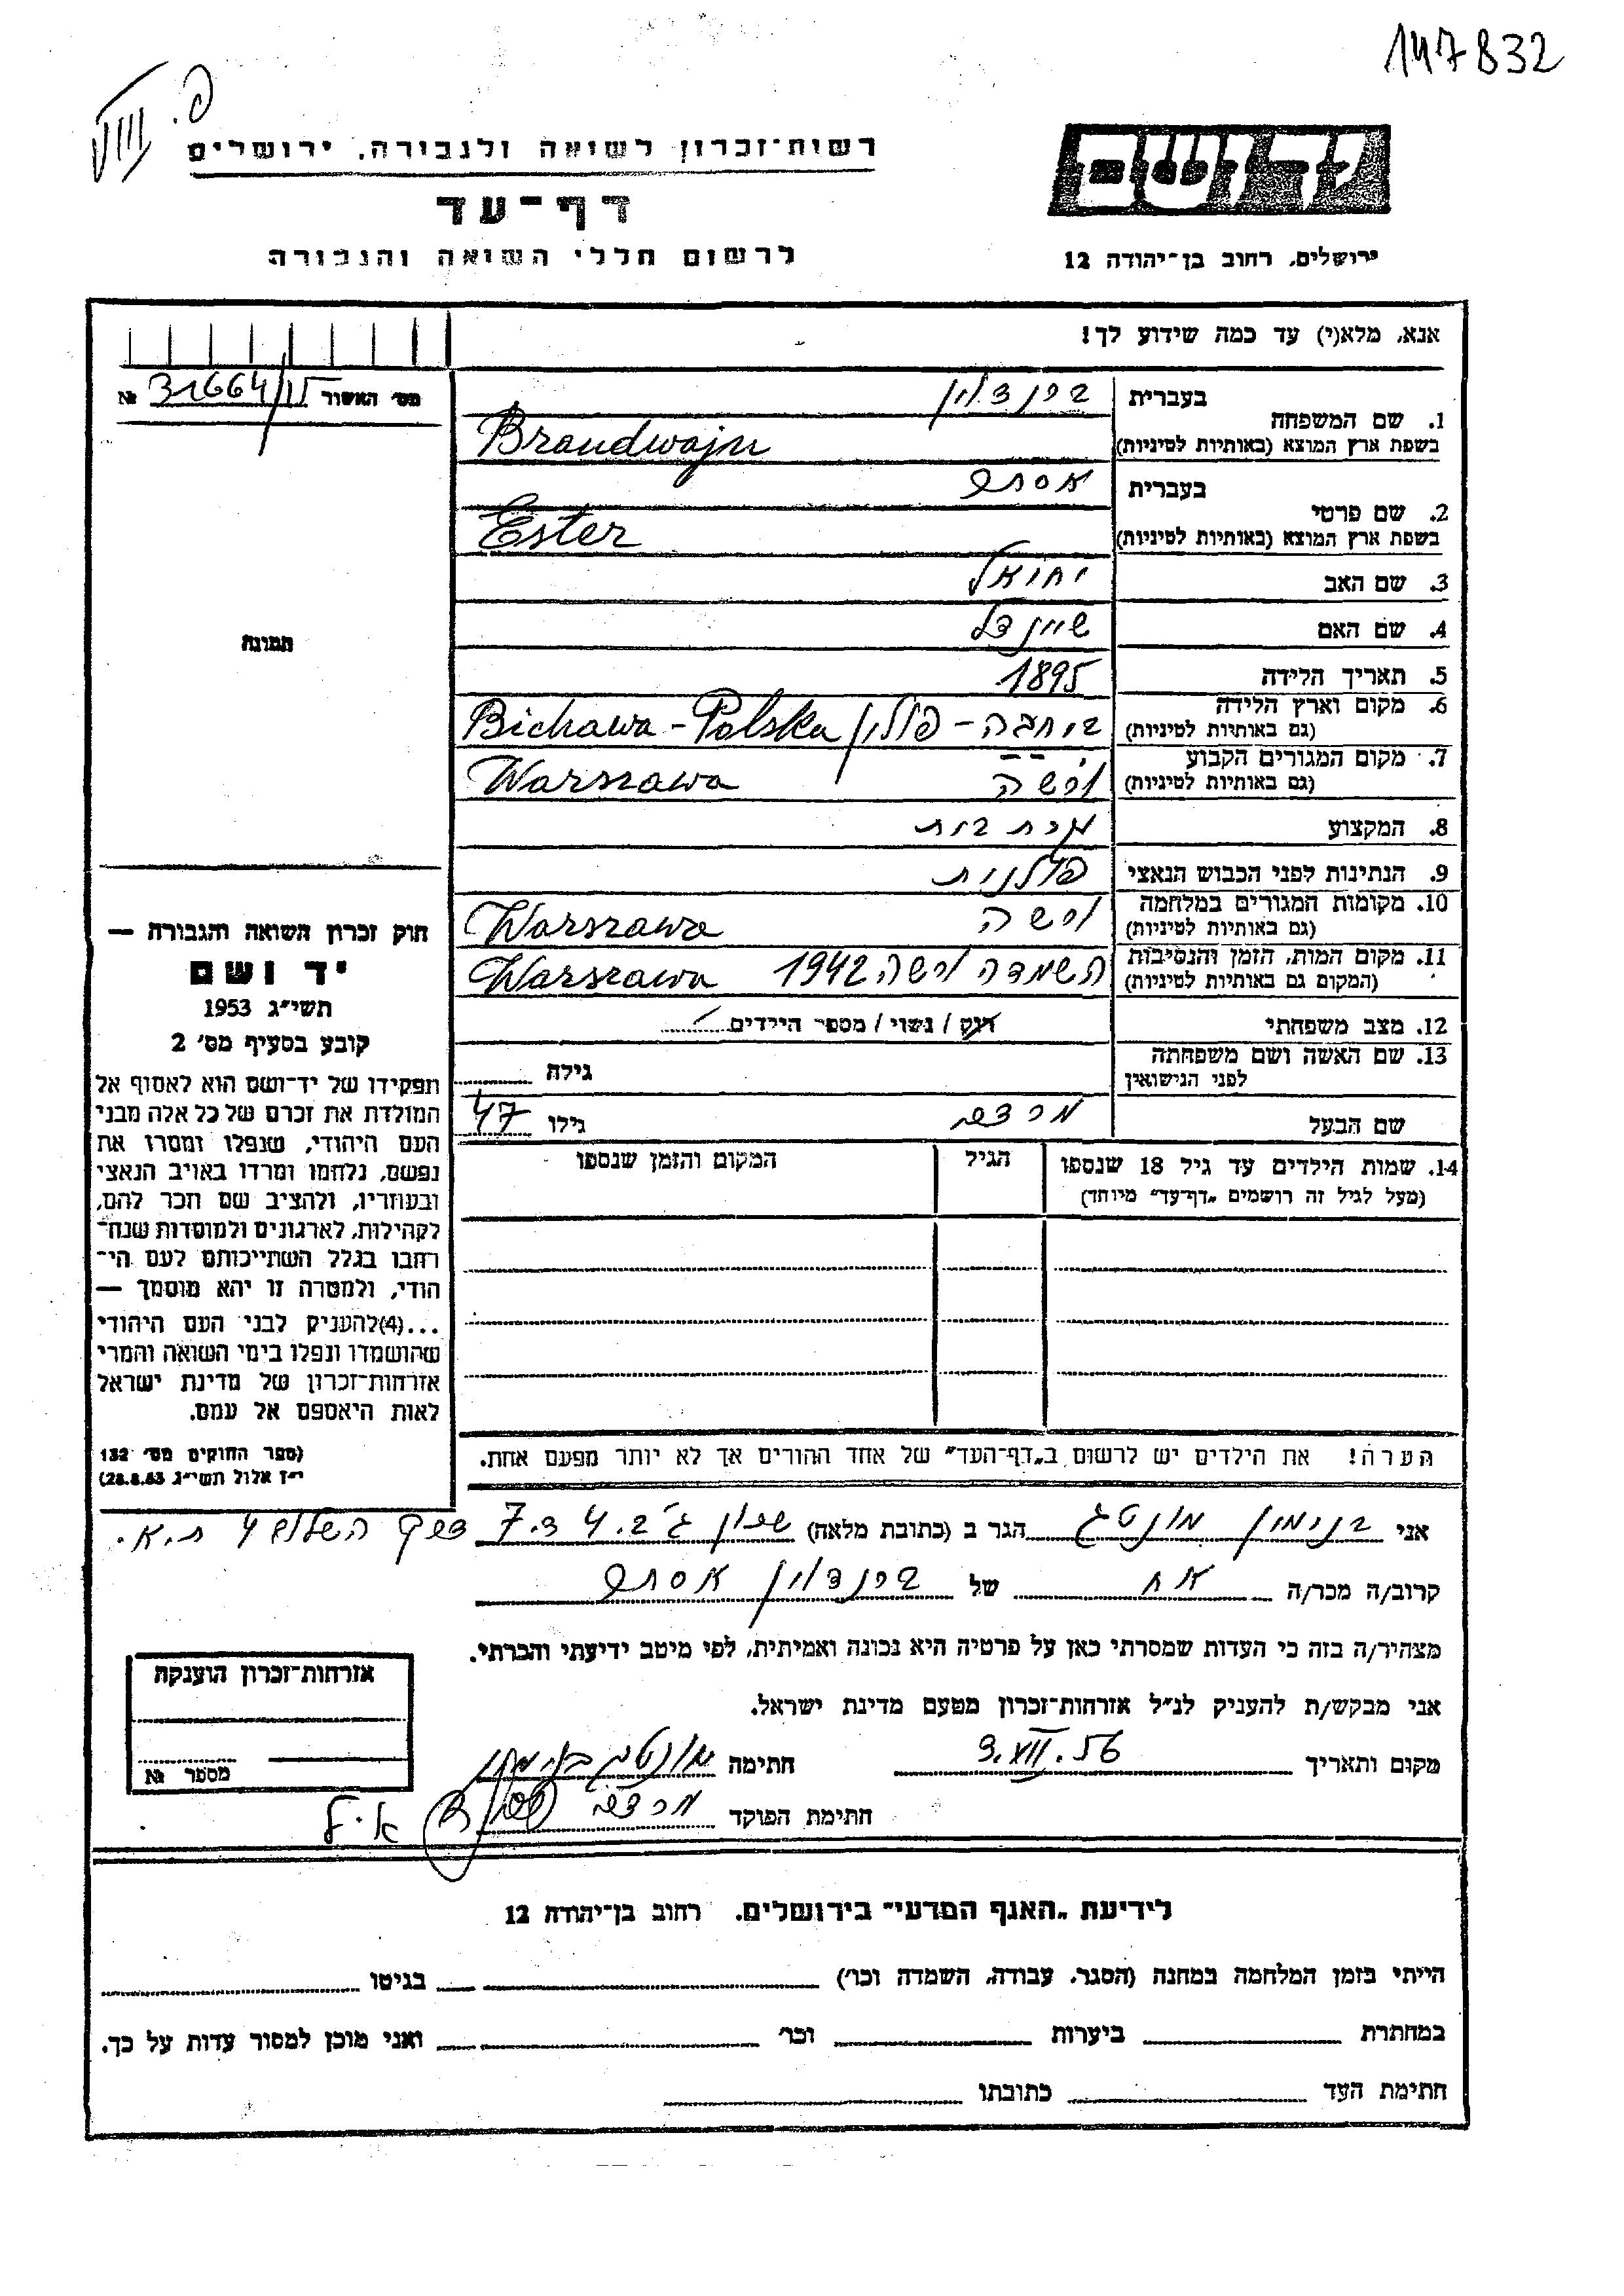 147832
פ. VIII
רשות־זכרון לשואה ולגבורה, ירושלים
יד ושם
דף־עד
לרשום חללי השואה והגבורה
ירושלים, רחוב בן־יהודה 12
אנא, מלא(י) עד כמה שידוע לך!
מס׳ האשור 31664/15 №
תמונה
1. שם המשפחה
בעברית ברנדוין
בשפת ארץ המוצא (באותיות לטיניות) Brandwajn
2. שם פרטי
בעברית אסתר
בשפת ארץ המוצא (באותיות לטיניות) Ester
3. שם האב יחיאל
4. שם האם שיינדל
5. תאריך הלידה 1895
6. מקום וארץ הלידה ביחבה – פולין Bichawa - Polska
(גם באותיות לטיניות)
7. מקום המגורים הקבוע ורשה Warszawa
(גם באותיות לטיניות)
8. המקצוע עקרת בית
9. הנתינות לפני הכבוש הנאצי פולנית
10. מקומות המגורים במלחמה ורשה Warszawa
(גם באותיות לטיניות)
11. מקום המות, הזמן והנסיבות השמדה ורשה 1942 Warszawa
(המקום גם באותיות לטיניות)
12. מצב משפחתי רוק / נשוי / מספר הילדים
13. שם האשה ושם משפחתה
לפני הנישואין גילה
שם הבעל מרדכי גילו 47
14. שמות הילדים עד גיל 18 שנספו הגיל המקום והזמן שנספו
(מעל לגיל זה רושמים „דף־עד״ מיוחד)
חוק זכרון השואה והגבורה —
יד ושם
תשי״ג 1953
קובע בסעיף מס׳ 2
תפקידו של יד־ושם הוא לאסוף אל
המולדת את זכרם של כל אלה מבני
העם היהודי, שנפלו ומסרו את
נפשם, נלחמו ומרדו באויב הנאצי
ובעוזריו, ולהציב שם וזכר להם,
לקהילות, לארגונים ולמוסדות שנח־
רבו בגלל השתייכותם לעם הי־
הודי, ולמטרה זו יהא מוסמך —
...(4) להעניק לבני העם היהודי
שהושמדו ונפלו בימי השואה והמרי
אזרחות־זכרון של מדינת ישראל
לאות היאספם אל עמם.
(ספר החוקים מס׳ 132
י״ז אלול תשי״ג 28.8.53)
הערה! את הילדים יש לרשום ב„דף־העד״ של אחד ההורים אך לא יותר מפעם אחת.
אני בנימין מונטג הגר ב (כתובת מלאה) שכון ג׳ ב. 4 ד. 7 ת.א.
קרוב/ה מכר/ה אח של ברנדוין אסתר
מצהיר/ה בזה כי העדות שמסרתי כאן על פרטיה היא נכונה ואמיתית, לפי מיטב ידיעתי והכרתי.
אני מבקש/ת להעניק לנ״ל אזרחות־זכרון מטעם מדינת ישראל.
מקום ותאריך 3.VII.56 חתימה מונטג בנימין
חתימת הפוקד מרדכי
אזרחות־זכרון הוענקה
מספר №
לידיעת „האגף המדעי״ בירושלים, רחוב בן־יהודה 12
הייתי בזמן המלחמה במחנה (הסגר, עבודה, השמדה וכו׳) בגיטו
במחתרת ביערות וכו׳ ואני מוכן למסור עדות על כך.
חתימת העד כתובתו